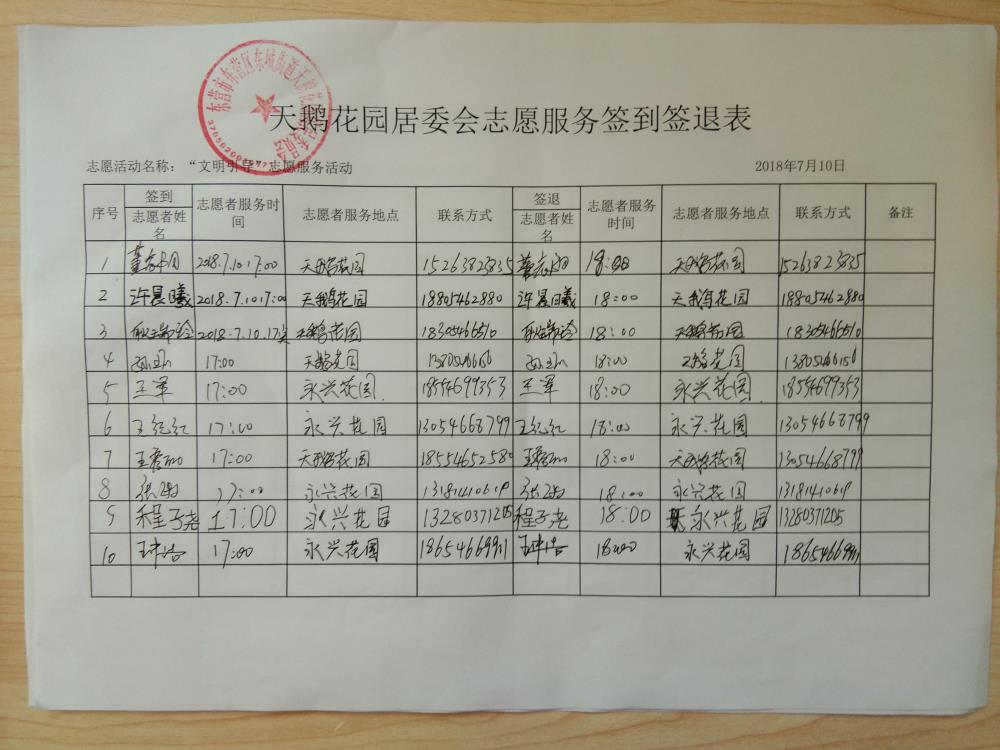 天鹅花园居委会志愿服务签到签退表
志愿活动名称：“文明引导”志愿服务活动 2018年7月10日
序号 签到 志愿者姓名 志愿者服务时间 志愿者服务地点 联系方式 签退 志愿者姓名 志愿者服务时间 志愿者服务地点 联系方式 备注
1 2018.7.10 17:00 天鹅花园 15263823835 18:00 天鹅花园 15263823835
2 许晨曦 2018.7.10 17:00 天鹅花园 18805462880 许晨曦 18:00 天鹅花园 18805462880
3 2018.7.10. 天鹅花园 18305466510 18:00 天鹅花园 18305466510
4 17:00 天鹅花园 18:00 天鹅花园
5 王军 17:00 永兴花园 18554699353 王军 18:00 永兴花园 18554699353
6 王红红 17:00 永兴花园 13054668799 王红红 18:00 永兴花园 13054668799
7 17:00 天鹅花园 18554652580 18:00 天鹅花园 13054668799
8 17:00 永兴花园 13181410619 18:00 永兴花园 13181410619
9 程子尧 17:00 永兴花园 13280371205 程子尧 18:00 永兴花园 13280371205
10 17:00 永兴花园 18654669911 18:00 永兴花园 18654669911